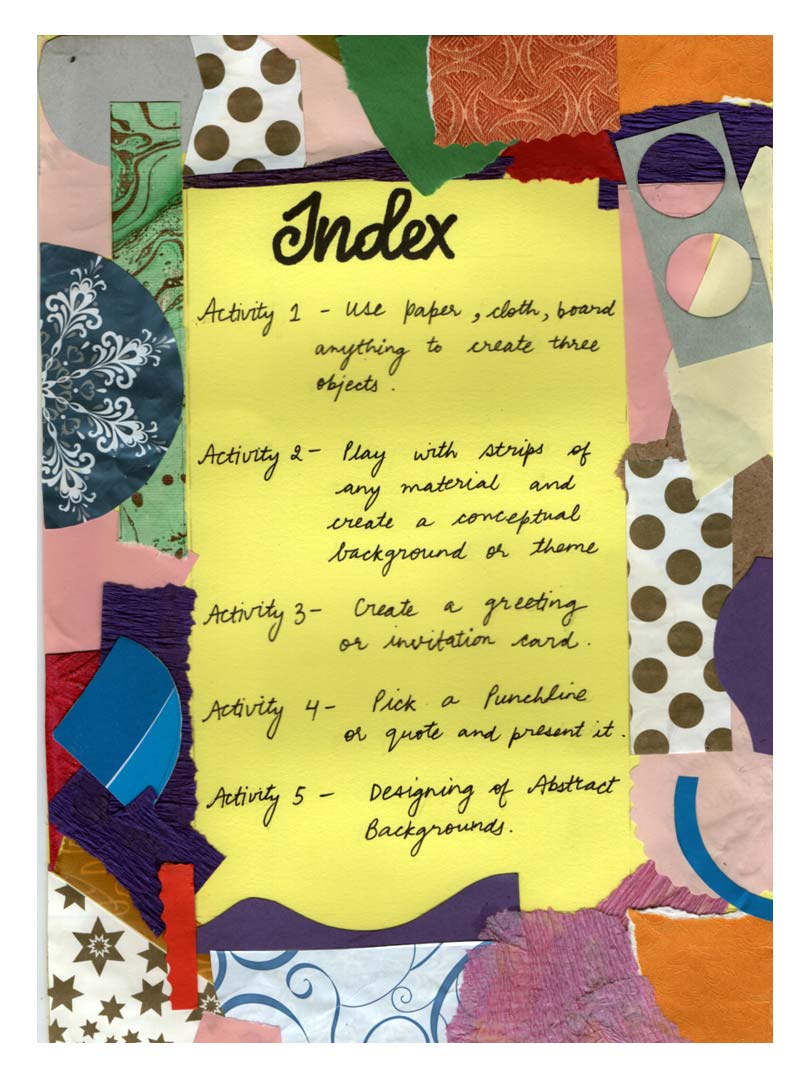 Index
Activity 1 - Use paper, cloth, board
anything to create three
objects.
Activity 2 - Play with strips of
any material and
create a conceptual
background or theme
Activity 3 - Create a greeting
or invitation card.
Activity 4 - Pick a Punchline
or quote and present it.
Activity 5 - Designing of Abstract
Backgrounds.